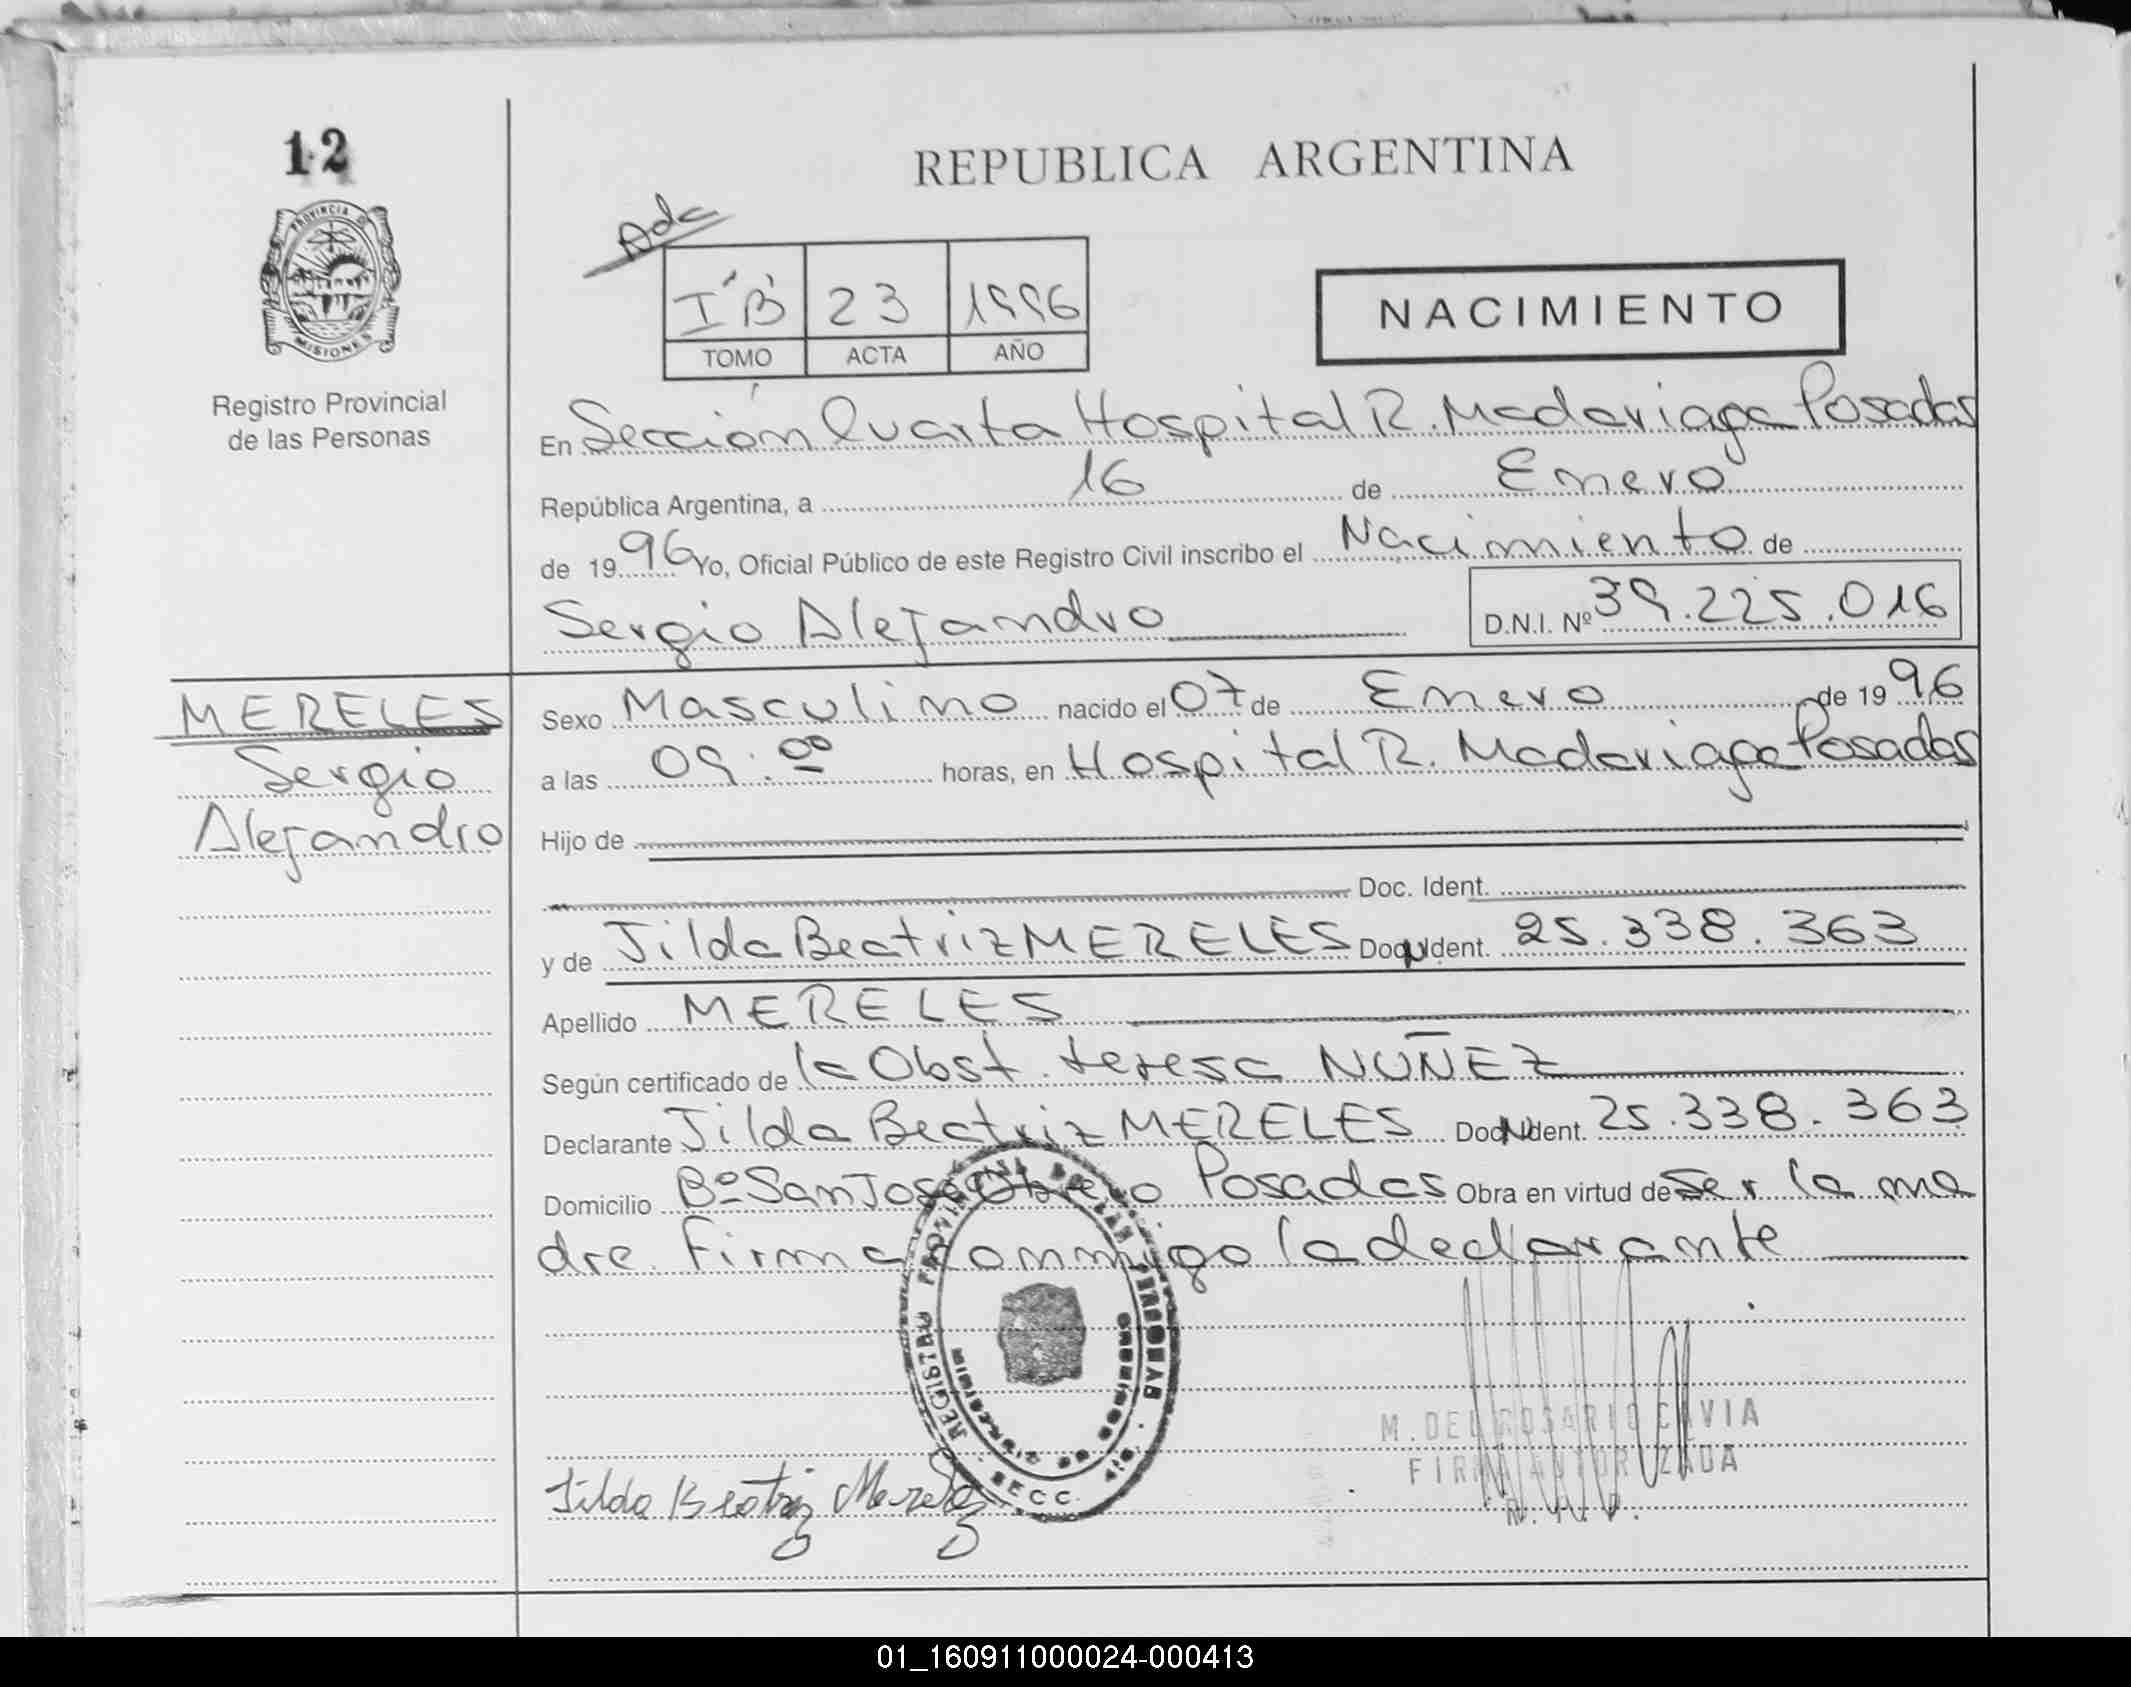 12
PROVINCIA DE
MISIONES
Registro Provincial
de las Personas
REPUBLICA ARGENTINA
Adc
I "B" 23 1996
TOMO ACTA AÑO
NACIMIENTO
En Sección Cuarta Hospital R. Madariaga Posadas
República Argentina, a 16 de Enero
de 1996 Yo, Oficial Público de este Registro Civil inscribo el Nacimiento de
Sergio Alejandro D.N.I. Nº 39.225.016
MERELES
Sergio
Alejandro
Sexo Masculino nacido el 07 de Enero de 1996
a las 09:00 horas, en Hospital R. Madariaga Posadas
Hijo de
Doc. Ident.
y de Jilda Beatriz MERELES Doc. Ident. 25.338.363
Apellido MERELES
Según certificado de la Obst. teresa NUÑEZ
Declarante Jilda Beatriz MERELES Doc. Ident. 25.338.363
Domicilio Bº San José Obrero Posadas Obra en virtud de ser la ma
dre. Firma conmigo la declarante
REGISTRO PROVINCIAL DE LAS PERSONAS
SECC.
M. DEL ROSARIO CAVIA
FIRMA AUTORIZADA
R. P. P.
Jilda Beatriz Mereles
01_160911000024-000413